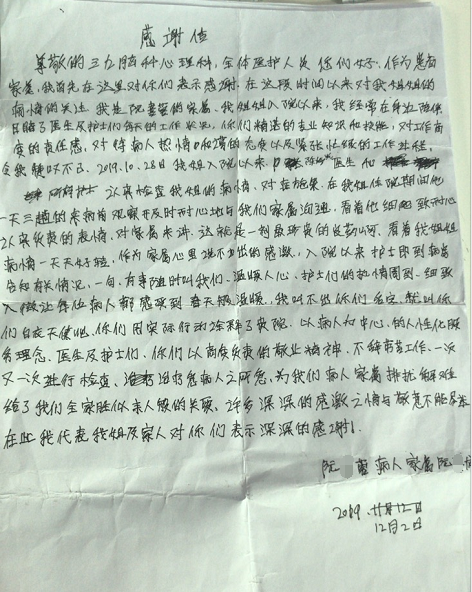 感谢信
尊敬的三九脑科心理科，全体医护人员你们好，作为患者
家属，我首先在这里对你们表示感谢，在这段时间以来对我姐姐的
病情的关注。我是阮 的家属，我姐姐入院以来，我经常在身边陪伴
目睹了医生及护士们每天的工作状况，你们精通的专业知识和技能，对工作高
度的责任感，对待病人热情和 的态度以及紧张忙碌的工作过程，
令我 不已。2019.10.28日我姐入院以来 医生和
护士 认真检查我姐的病情，对症施策，在我姐住院期间他
一天三趟的来病前观察并及时耐心地与我们家属沟通，看着他细 耐心
认真负责的表情，对家属来讲，这就是一剂最珍贵的良药啊。看着我姐姐
病情一天天好转，作为家属心里说不出的感激，入院以来护士即到病房
告知有关情况，一句，有事随时叫我们，温暖人心，护士们的热情周到，细致
入微让每位病人都感受到春天般温暖，我叫不出你们名字，就叫你
们白衣天使吧，你们用实际行动诠释了贵院，以病人为中心，的人性化服
务理念，医生及护士们，你们以高度负责的敬业精神，不辞劳苦工作，一次
又一次进行检查， 治疗急病人之所急，为我们病人家属排忧解难
给了我们全家胜似亲人般的关照，许多深深的感激之情与敬意不能尽表
在此我代表我姐及家人对你们表示深深的感谢！
阮 病人家属阮
2019.
12月2日